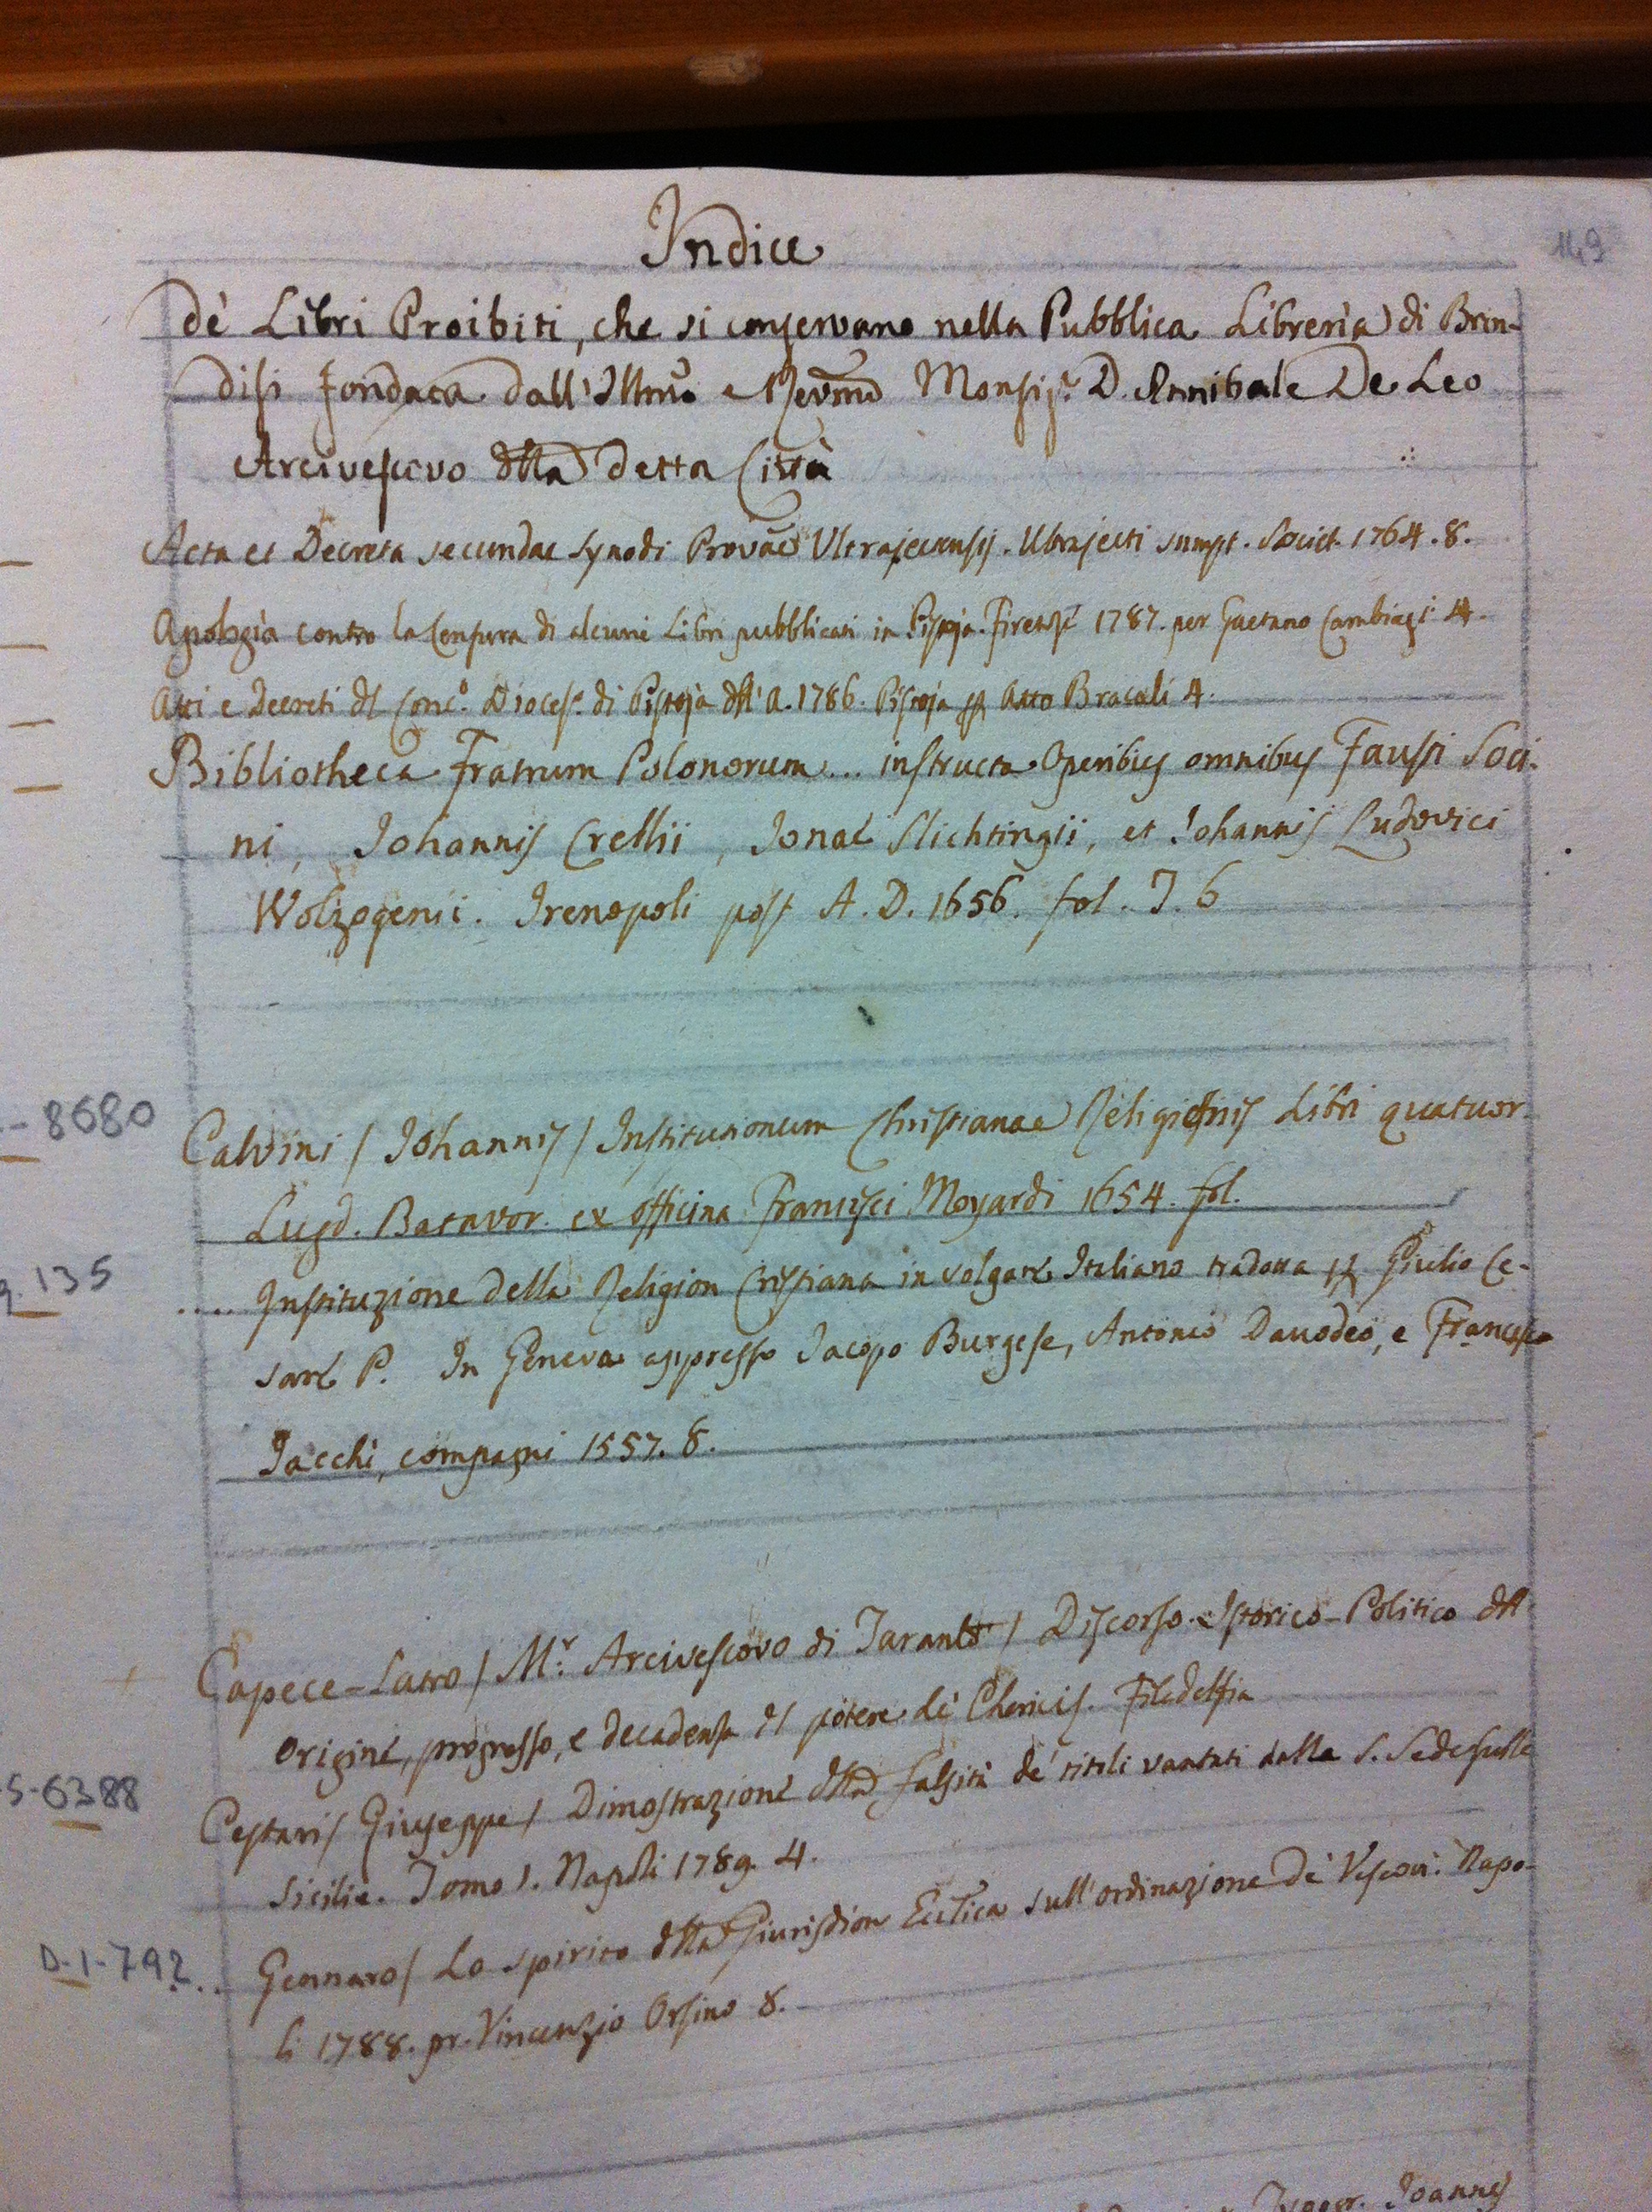 Indice
149
de' Libri Proibiti, che si conservano nella Pubblica Libreria di Brin-
disi fondata dall'Illmo e Revmo Monsigr. D. Annibale De Leo
Arcivescovo dlla detta Città
Acta et Decreta secundae Synodi Provae Ultrajectensis. Ultrajecti sumpt. Societ. 1764. 8.
Apologia contro la Censura di alcuni Libri pubblicati in Pistoja. Firenze 1787. per Gaetano Cambiagi 4.
Atti e Decreti dl Conc.o Dioces.o di Pistoja dll'a. 1786. Pistoja per Atto Bracali 4.
Bibliotheca Fratrum Polonorum ... instructa Operibus omnibus Fausti Soci-
ni, Johannis Crellii, Jonae Slichtingii, et Johannis Ludovici
Wolzogenii. Irenopoli post A. D. 1656. fol. T. 6
8680
Calvini / Johannis / Institutionum Christianae Religionis Libri quatuor
Lugd. Batavor. ex officina Francisci Moyardi 1654. fol.
135
.... Instituzione della Religion Cristiana in volgare Italiano tradotta per Giulio Ce-
sare P. In Geneva appresso Jacopo Burgese, Antonio Davodeo, e Francesco
Jacchi, compagni 1557. 8.
Capece-Latro / Mr. Arcivescovo di Taranto / Discorso Istorico-Politico dll'
Origine, progresso, e decadenza dl potere de' Chericis. Filadelfia
S-6388
Cestari / Giuseppe / Dimostrazione dlla falsità de' titoli vantati dalla S. Sede sulle
Sicilie. Tomo 1. Napoli 1789. 4.
D-1-792
.. Gennaro / Lo spirito dlla Giurisdion Ecclica sull'ordinazione de' Vescovi. Napo-
li 1788. pr. Vincenzio Orsino 8.
Joannes